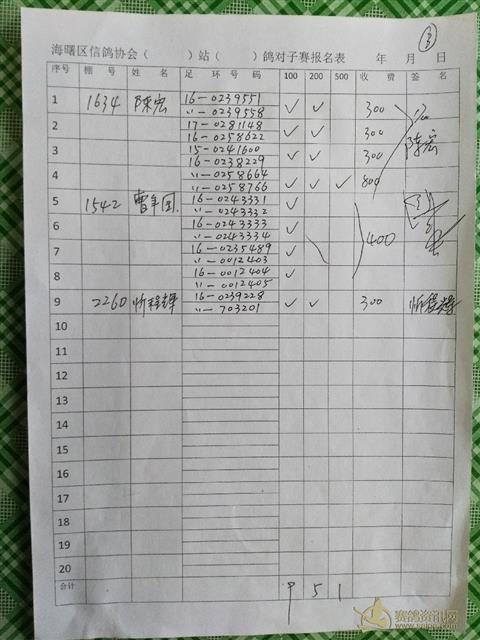 ③
海曙区信鸽协会（ ）站（ ）鸽对子赛报名表 年 月 日
序号 棚号 姓名 足环号码 100 200 500 收费 签名
1 1634 陈宏 16-0239551 ✓ ✓ 300
〃-0239558
2 17-0281148 ✓ ✓ 300 陈宏
16-0258622
3 15-0241600 ✓ ✓ 300
16-0238229
4 〃-0258664 ✓ ✓ ✓ 800
〃-0258766
5 1542 16-0243331 ✓
〃-0243332
6 16-0243333 ✓ 400
〃-0243334
7 16-0235489 ✓
〃-0012403
8 16-0012404 ✓
〃-0012405
9 2260 忻程锋 16-0239228 ✓ ✓ 300 忻程锋
〃-703201
10
11
12
13
14
15
16
17
18
19
20
合计 9 5 1
赛鸽资讯网
www.saige.com